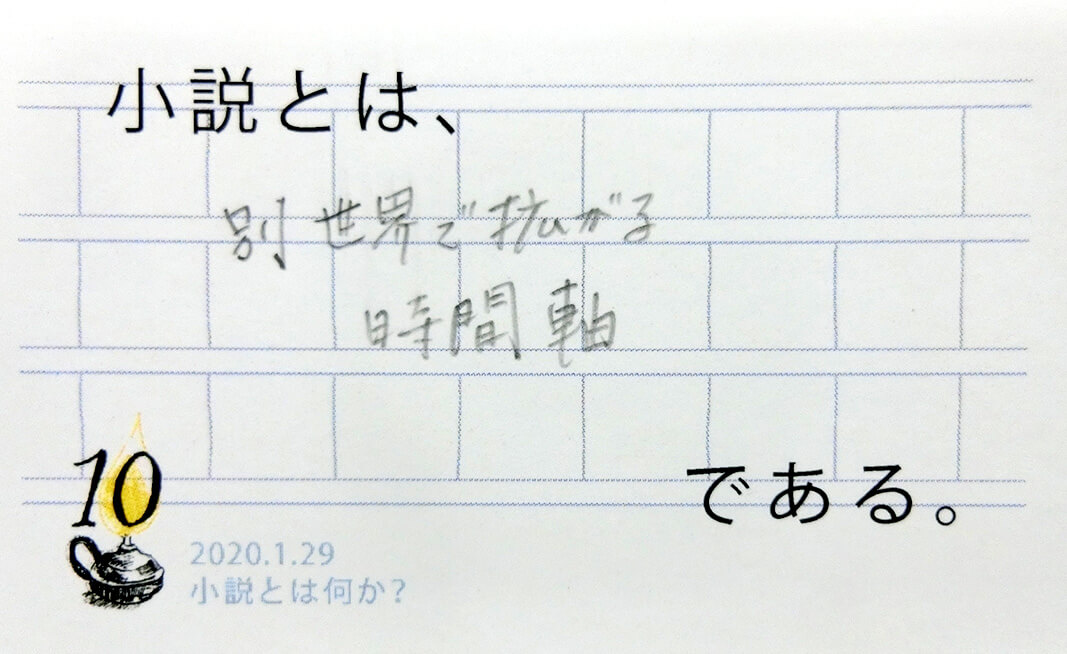 小説とは、
別世界で拡がる
時間軸
である。
10
2020.1.29
小説とは何か?